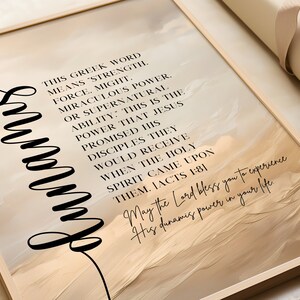 dunamis
THIS GREEK WORD
MEANS 'STRENGTH,
FORCE, MIGHT,
MIRACULOUS POWER,
OR SUPERNATURAL
ABILITY.' THIS IS THE
POWER THAT JESUS
PROMISED HIS
DISCIPLES THEY
WOULD RECEIVE
WHEN THE HOLY
SPIRIT CAME UPON
THEM. [ACTS 1:8]
May the Lord bless you to experience
His dunamis power in your life